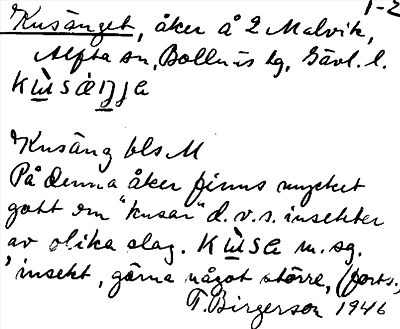 1-2
Kusänget, åker å 2 Malvik,
Alfta sn, Bollnäs tg, Gävl. l.
kɯ̀sáŋja
Kusäng bls M
På denna åker finns mycket
gott om "kusar" d.v.s. insekter
av olika slag. kɯ̀sa m. sg.
'insekt, gärna något större, (forts.,
T. Birgerson 1946